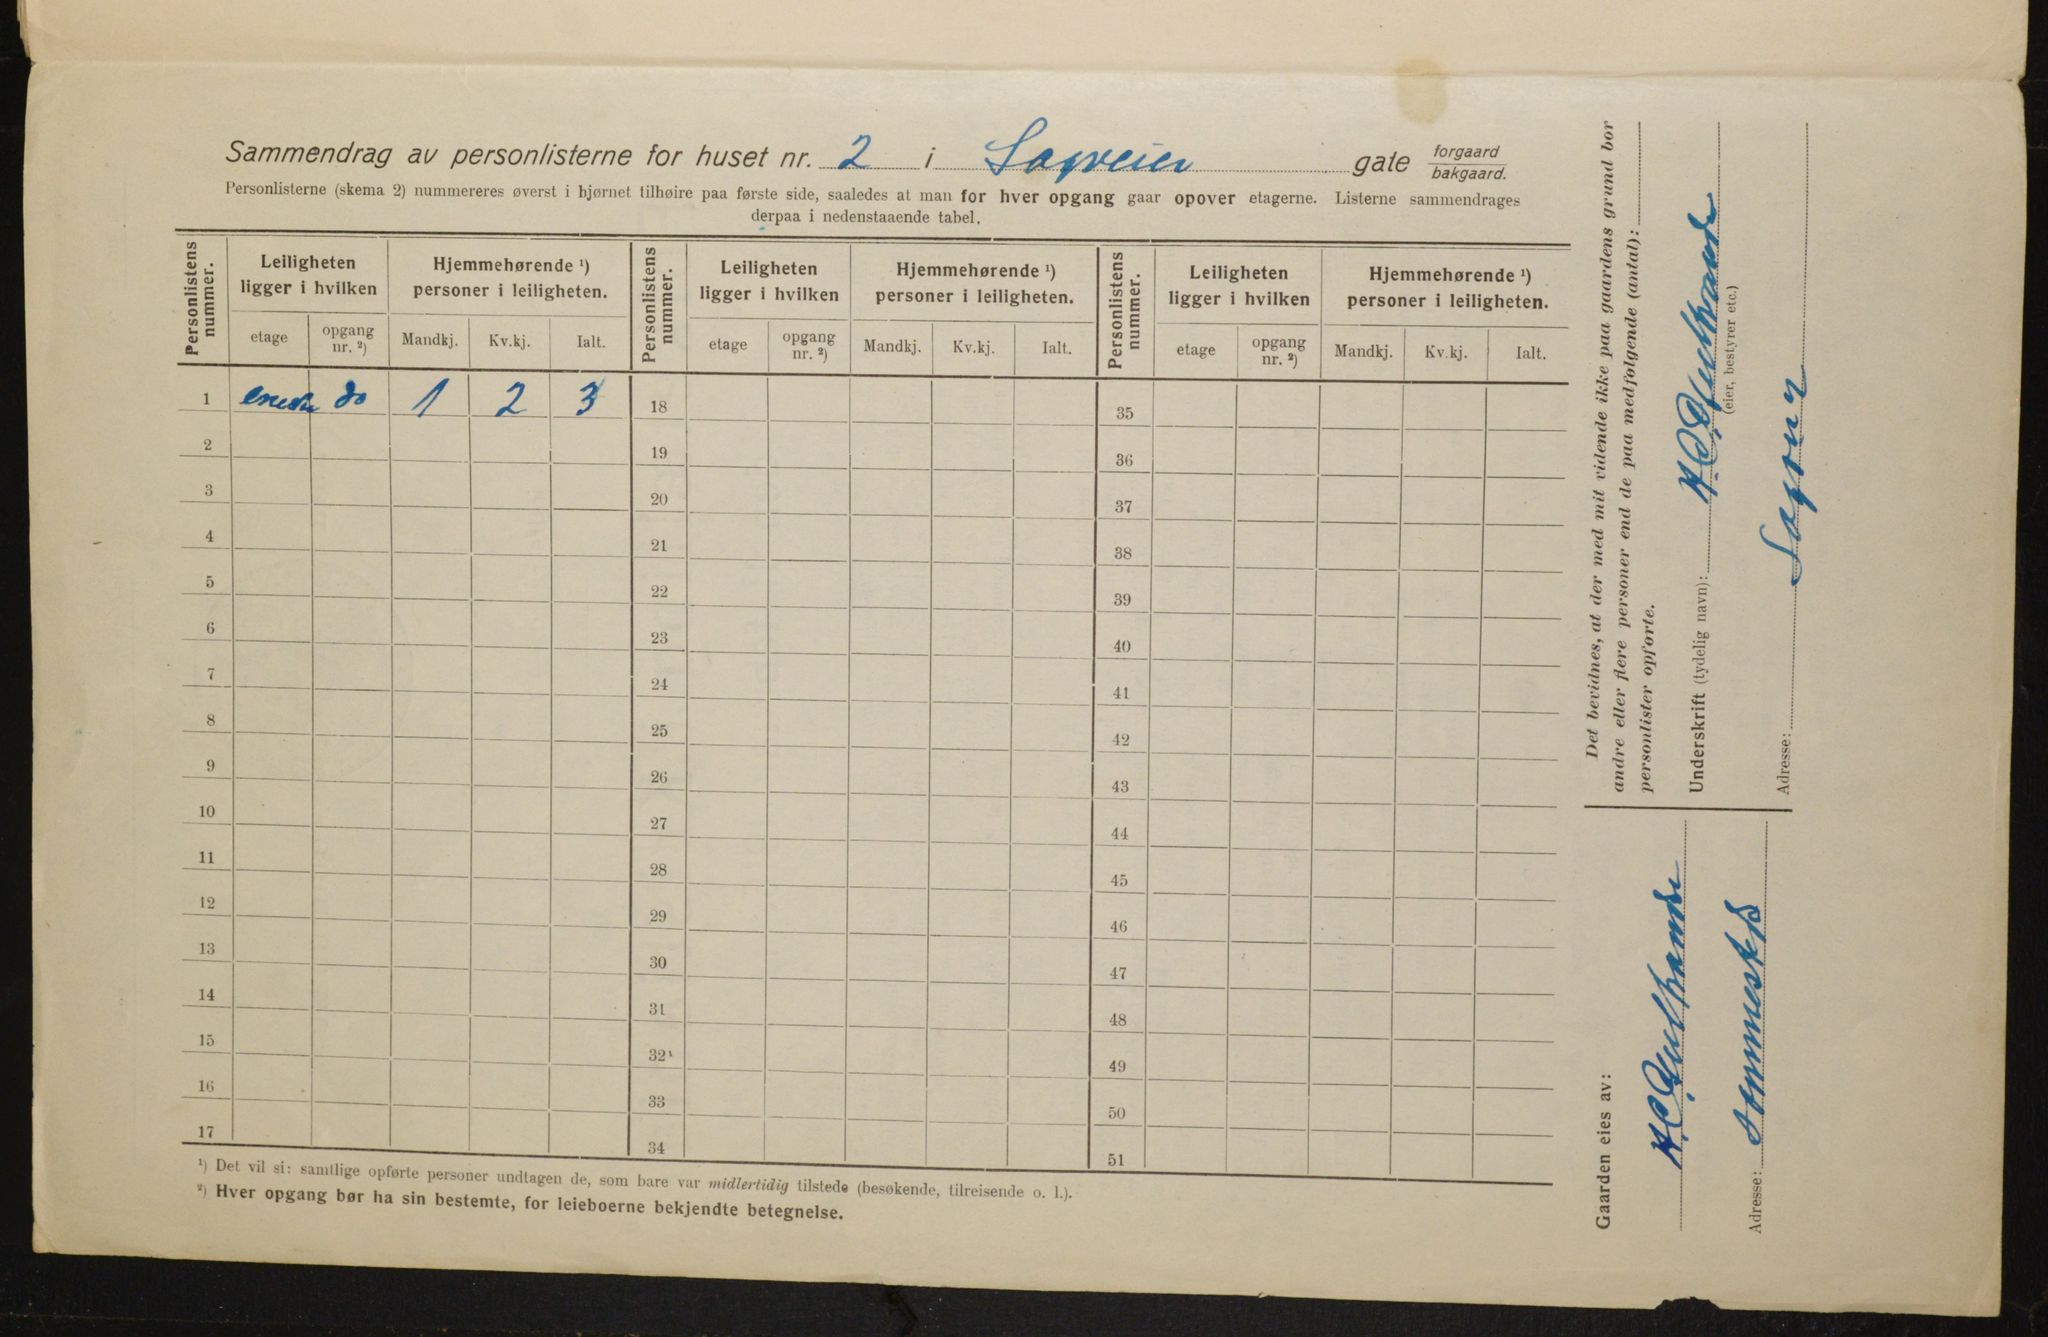 Sammendrag av personlisterne for huset nr. 2 i Sagveien gate forgaard bakgaard.
Personlisterne (skema 2) nummereres øverst i hjørnet tilhøire paa første side, saaledes at man for hver opgang gaar opover etagerne. Listerne sammendrages
derpaa i nedenstaaende tabel.
Personlistens nummer. Leiligheten ligger i hvilken Hjemmehørende ¹) personer i leiligheten. Personlistens nummer. Leiligheten ligger i hvilken Hjemmehørende ¹) personer i leiligheten. Personlistens nummer. Leiligheten ligger i hvilken Hjemmehørende ¹) personer i leiligheten.
etage opgang nr. ²) Mandkj. Kv.kj. Ialt. etage opgang nr. ²) Mandkj. Kv.kj. Ialt. etage opgang nr. ²) Mandkj. Kv.kj. Ialt.
1 eneste do 1 2 3 18 35
2 19 36
3 20 37
4 21 38
5 22 39
6 23 40
7 24 41
8 25 42
9 26 43
10 27 44
11 28 45
12 29 46
13 30 47
14 31 48
15 32 49
16 33 50
17 34 51
¹) Det vil si: samtlige opførte personer undtagen de, som bare var midlertidig tilstede (besøkende, tilreisende o. l.).
²) Hver opgang bør ha sin bestemte, for leieboerne bekjendte betegnelse.
Det bevidnes, at der med mit vidende ikke paa gaardens grund bor
andre eller flere personer end de paa medfølgende (antal):
personlister opførte.
Underskrift (tydelig navn):
(eier, bestyrer etc.)
Adresse: Sagvn 2
Gaarden eies av:
Adresse: